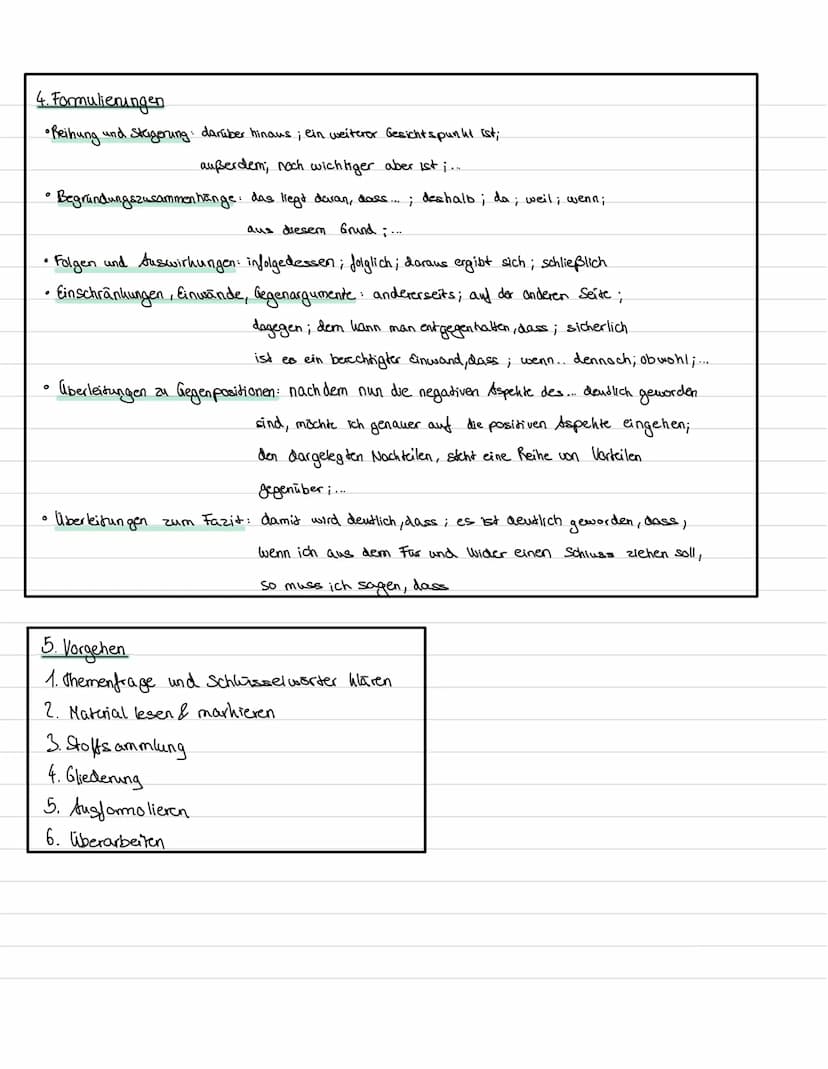 4. Formulierungen
• Reihung und Steigerung: darüber hinaus ; ein weiterer Gesichtspunkt ist;
außerdem; noch wichtiger aber ist ;...
• Begründungszusammenhänge: das liegt daran, dass... ; deshalb ; da ; weil ; wenn ;
aus diesem Grund ;...
• Folgen und Auswirkungen: infolgedessen ; folglich ; daraus ergibt sich ; schließlich
• Einschränkungen, Einwände, Gegenargumente: andererseits; auf der anderen Seite ;
dagegen ; dem kann man entgegenhalten, dass ; sicherlich
ist es ein berechtigter Einwand, dass ; wenn.. dennoch; obwohl ;...
• Überleitungen zu Gegenpositionen: nachdem nun die negativen Aspekte des... deutlich geworden
sind, möchte ich genauer auf die positiven Aspekte eingehen;
den dargelegten Nachteilen, steht eine Reihe von Vorteilen
gegenüber ;...
• Überleitungen zum Fazit: damit wird deutlich, dass ; es ist deutlich geworden, dass,
wenn ich aus dem Für und Wider einen Schluss ziehen soll,
so muss ich sagen, dass
5. Vorgehen
1. Themenfrage und Schlüsselwörter klären
2. Material lesen & markieren
3. Stoffsammlung
4. Gliederung
5. Ausformolieren
6. Überarbeiten